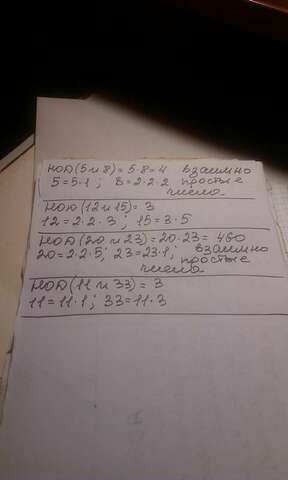 НОД(5 и 8) = 5·8=4 взаимно
5=5·1; 8=2·2·2 простые
числа
НОД(12 и 15) = 3
12=2·2·3; 15=3·5
НОД(20 и 23)=20·23=460
20=2·2·5; 23=23·1; взаимно
простые
числа
НОД(11 и 33) = 3
11=11·1; 33=11·3